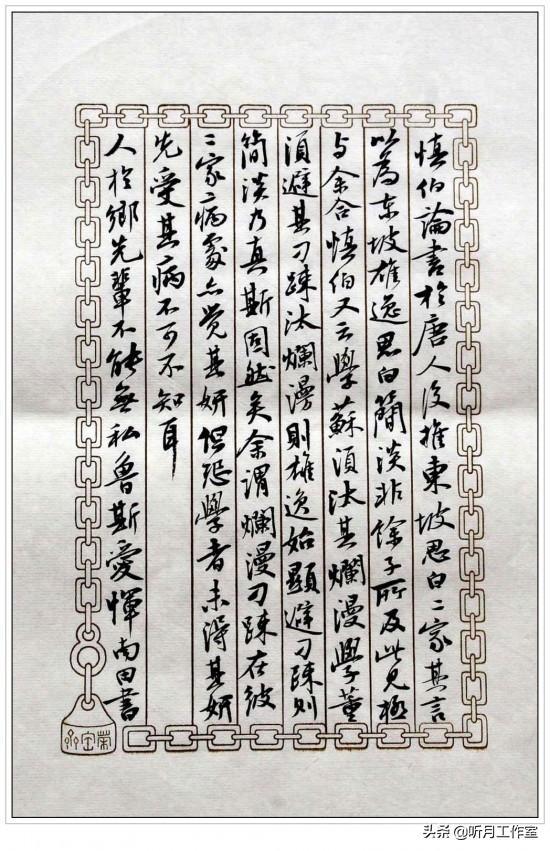 慎伯論書於唐人後推東坡思白二家其言
以為東坡雄逸思白簡淡非餘子所及此見極
与余合慎伯又云學蘇須汰其爛漫學董
須避其刁疎汰爛漫則雄逸始顯避刁疎則
簡淡乃真斯固然矣余謂爛漫刁疎在彼
二家病處亦覺其妍但恐學者未得其妍
先受其病不可不知耳
人於鄉先輩不能無私魯斯愛惲南田書
头条 @听月工作室